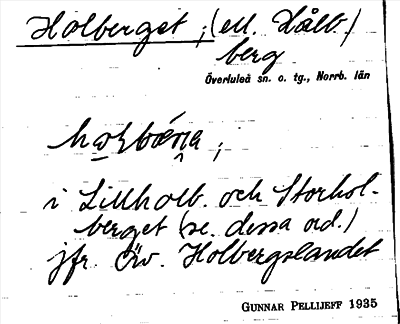 Holberget ; (ell. Hålb./
berg
Överluleå sn. o. tg., Norrb. län
i Lillholb. och Storhol-
berget (se. dessa ord.)
jfr. Öv. Holbergslandet
GUNNAR PELLIJEFF 1935